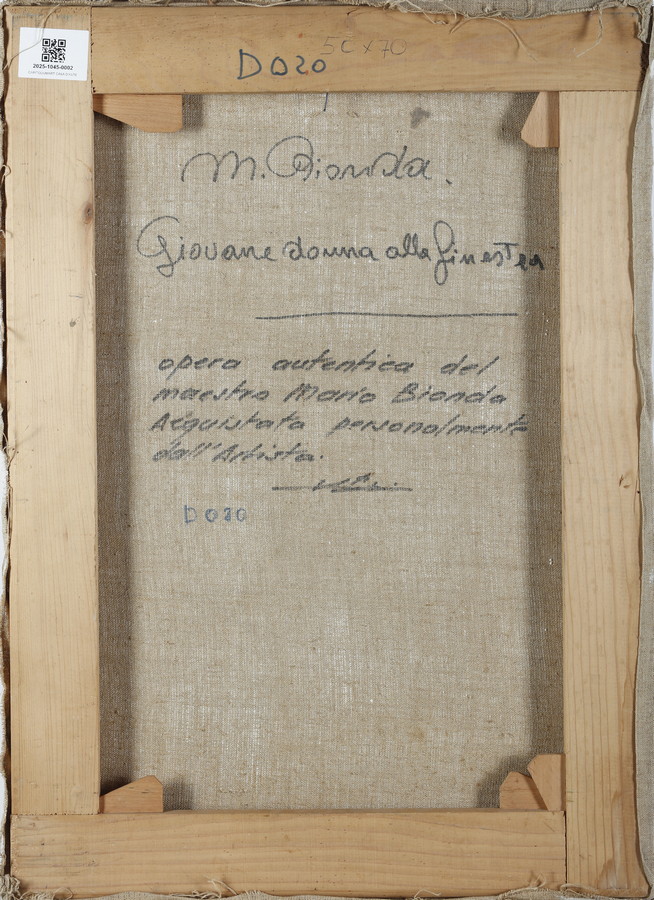 2025-1045-0002
50 x 70
D020
M. Bionda.
Giovane donna alla finestra
opera autentica del
maestro Mario Bionda
Acquistata personalmente
dall'Artista.
D020